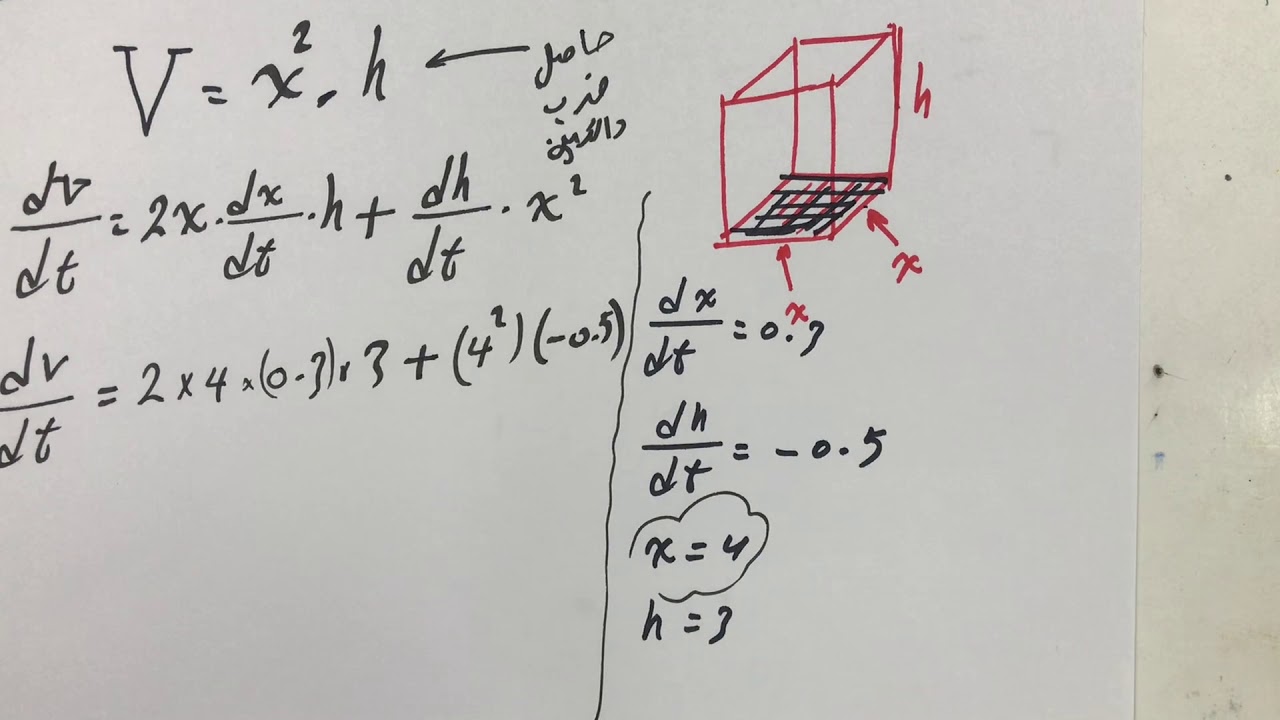 V = x² . h ← حاصل
ضرب
دالتين
dv/dt = 2x . dx/dt . h + dh/dt . x²
dv/dt = 2 × 4 × (0.3) × 3 + (4²)(-0.5)
h
x
x
dx/dt = 0.3
dh/dt = -0.5
x = 4
h = 3